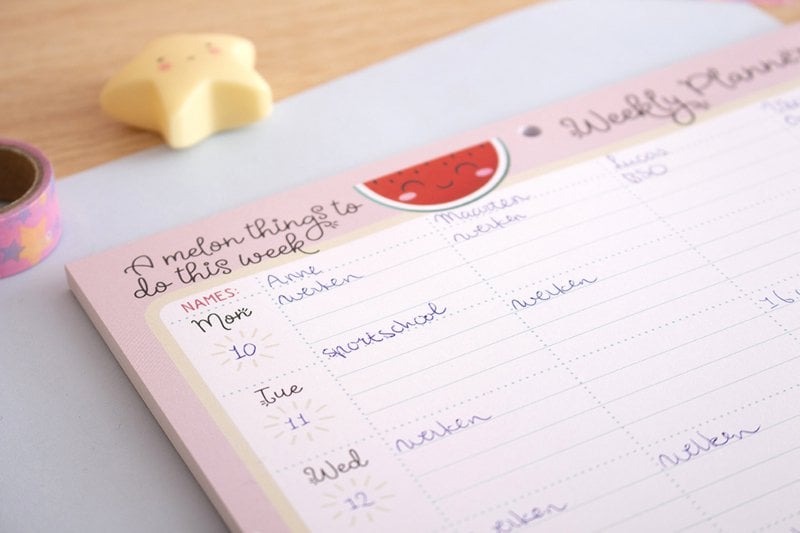 Weekly Planner
A melon things to
do this week
NAMES:
Anne
Maarten
Lucas
Mon
10
werken
werken
BSO
sportschool
Tue
11
werken
werken
16.
Wed
12
werken